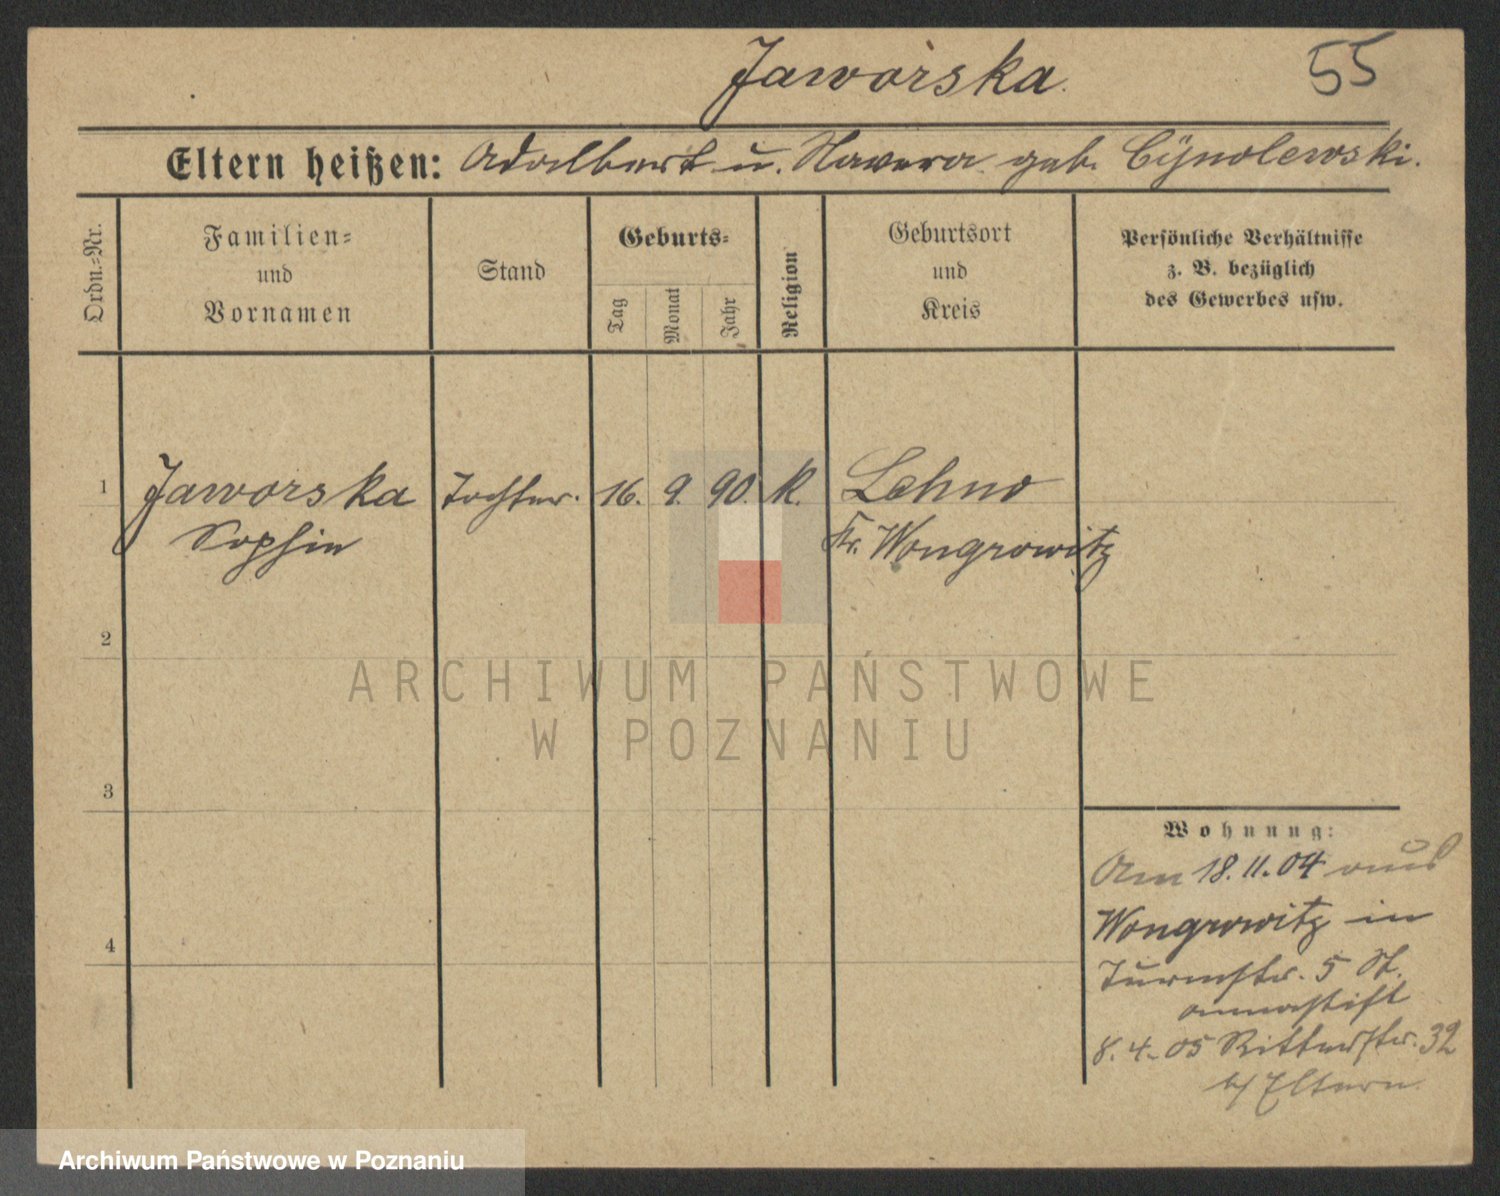 Jaworska.
55
Eltern heißen: Adalbert u. Xawera geb. Cÿnolewski.
Ordn.=Nr.
Familien=
und
Vornamen
Stand
Geburts=
Tag
Monat
Jahr
Religion
Geburtsort
und
Kreis
Persönliche Verhältnisse
z. B. bezüglich
des Gewerbes usw.
1 Jaworska Tochter. 16. 9. 90. K. Lehno
Sophie Kr. Wongrowitz
2
ARCHIWUM PAŃSTWOWE
W POZNANIU
3
4
Wohnung:
Am 18.11.04 aus
Wongrowitz in
Turmstr. 5 St.
Annastift
8.4.05 Ritterstr. 32
b/ Eltern.
Archiwum Państwowe w Poznaniu